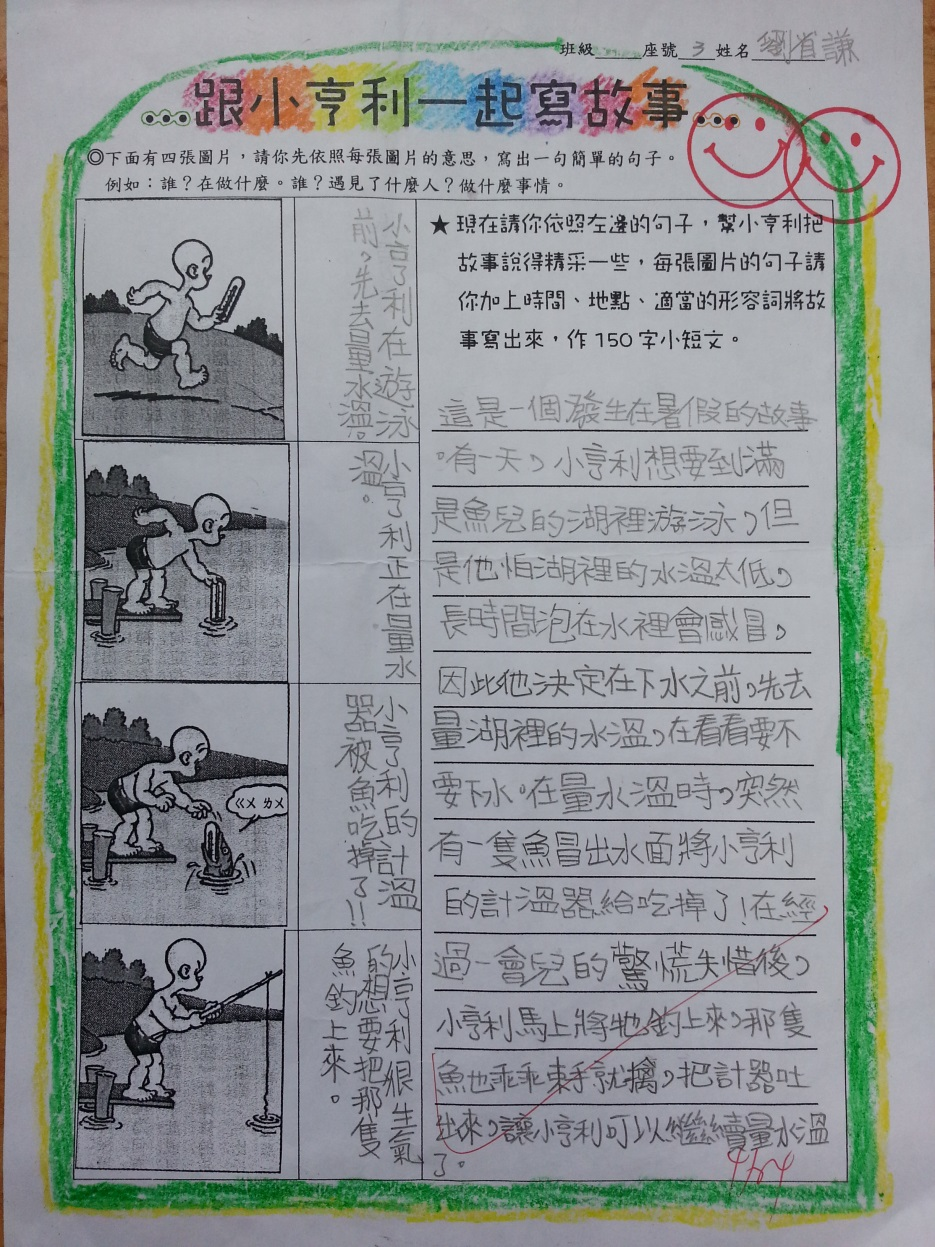 班級 座號 3 姓名 劉省謙
...跟小亨利一起寫故事...
◎下面有四張圖片，請你先依照每張圖片的意思，寫出一句簡單的句子。
例如：誰？在做什麼。誰？遇見了什麼人？做什麼事情。
小亨利在游泳
前，先去量水溫。
小亨利正在量水
溫。
小亨利的計溫
器被魚吃掉了!!
ㄍㄨ ㄌㄨ
小亨利很生氣
的想要把那隻
魚釣上來。
★現在請你依照左邊的句子，幫小亨利把
故事說得精采一些，每張圖片的句子請
你加上時間、地點、適當的形容詞將故
事寫出來，作150字小短文。
這是一個發生在暑假的故事
。有一天，小亨利想要到滿
是魚兒的湖裡游泳，但
是他怕湖裡的水溫太低，
長時間泡在水裡會感冒，
因此他決定在下水之前，先去
量湖裡的水溫，在看看要不
要下水。在量水溫時，突然
有一隻魚冒出水面將小亨利
的計溫器給吃掉了！在經
過一會兒的驚慌失惜後，
小亨利馬上將牠釣上來，那隻
魚也乖乖束手就擒，把計器吐
出來，讓小亨利可以繼續量水溫
了。